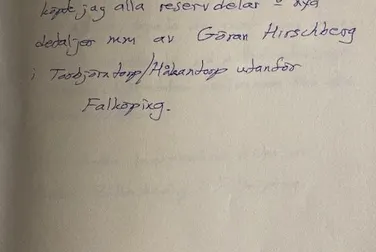 köpte jag alla reservdelar o nya
detaljer mm av Göran Hirschberg
i Torbjörntorp/Håkantorp utanför
Falköping.